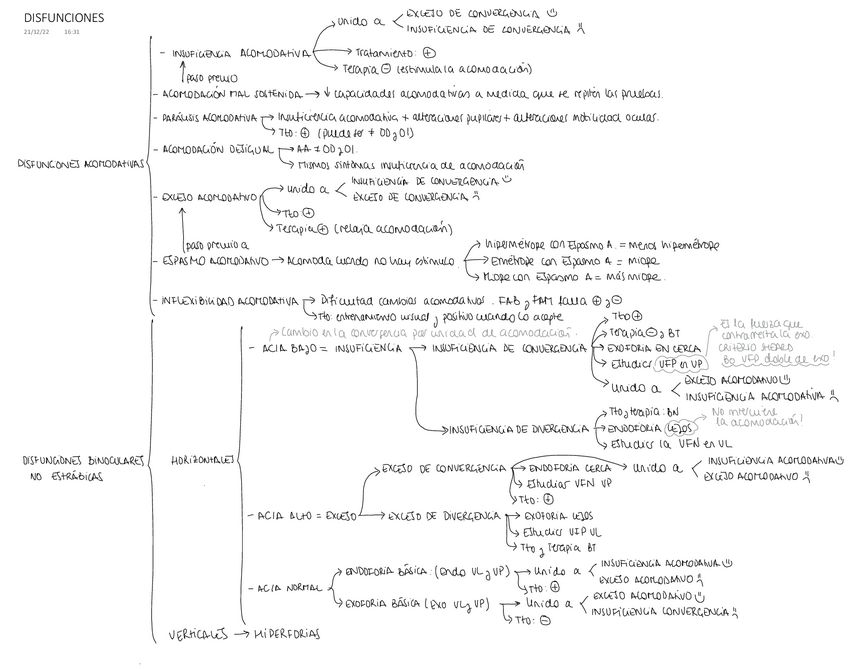 DISFUNCIONES
21/12/22 16:31
DISFUNCIONES ACOMODATIVAS
- INSUFICIENCIA ACOMODATIVA
unido a < EXCESO DE CONVERGENCIA
INSUFICIENCIA DE CONVERGENCIA
Tratamiento: ⊕
Terapia ⊖ (estimula la acomodación)
paso previo
- ACOMODACIÓN MAL SOSTENIDA → ↓ capacidades acomodativas a medida que se repiten las pruebas.
- PARÁLISIS ACOMODATIVA → Insuficiencia acomodativa + alteraciones pupilares + alteraciones motilidad ocular.
Tto: ⊕ (puede ser ≠ OD y OI)
- ACOMODACIÓN DESIGUAL → AA ≠ OD y OI.
Mismos síntomas insuficiencia de acomodación
- EXCESO ACOMODATIVO
unido a < INSUFICIENCIA DE CONVERGENCIA
EXCESO DE CONVERGENCIA
Tto ⊕
Terapia ⊕ (relaja acomodación)
paso previo a
- ESPASMO ACOMODATIVO → Acomoda cuando no hay estímulo
hipermétrope con Espasmo A. = menos hipermétrope
Emétrope con Espasmo A = miope
Miope con Espasmo A = más miope.
- INFLEXIBILIDAD ACOMODATIVA → Dificultad cambios acomodativos. FAB y FAM falla ⊕ y ⊖
Tto: entrenamiento visual y positivo cuando lo acepte
DISFUNCIONES BINOCULARES
NO ESTRÁBICAS
HORIZONTALES
Cambio en la convergencia por unidad de acomodación.
- ACIA BAJO = INSUFICIENCIA → INSUFICIENCIA DE CONVERGENCIA
Tto ⊕
Terapia ⊖ y BT
EXOFORIA EN CERCA
Estudiar VFP en VP
Es la fuerza que
contrarresta la exo.
CRITERIO SHEARD
Bo VFP doble de exo!
unido a < EXCESO ACOMODATIVO
INSUFICIENCIA ACOMODATIVA
INSUFICIENCIA DE DIVERGENCIA
Tto y terapia: BN
ENDOFORIA LEJOS
No interviene
la acomodación!
Estudiar la VFN en VL
- ACIA ALTO = EXCESO
EXCESO DE CONVERGENCIA
ENDOFORIA CERCA → unido a < INSUFICIENCIA ACOMODATIVA
EXCESO ACOMODATIVO
Estudiar VFN VP
Tto: ⊕
EXCESO DE DIVERGENCIA
EXOFORIA LEJOS
Estudiar VFP VL
Tto y Terapia BT
- ACIA NORMAL
ENDOFORIA BÁSICA: (Endo VL y VP) → Unido a < INSUFICIENCIA ACOMODATIVA
EXCESO ACOMODATIVO
Tto: ⊕
EXOFORIA BÁSICA (EXO VL y VP) → Unido a < EXCESO ACOMODATIVO
INSUFICIENCIA CONVERGENCIA
Tto: ⊖
VERTICALES → HIPERFORIAS